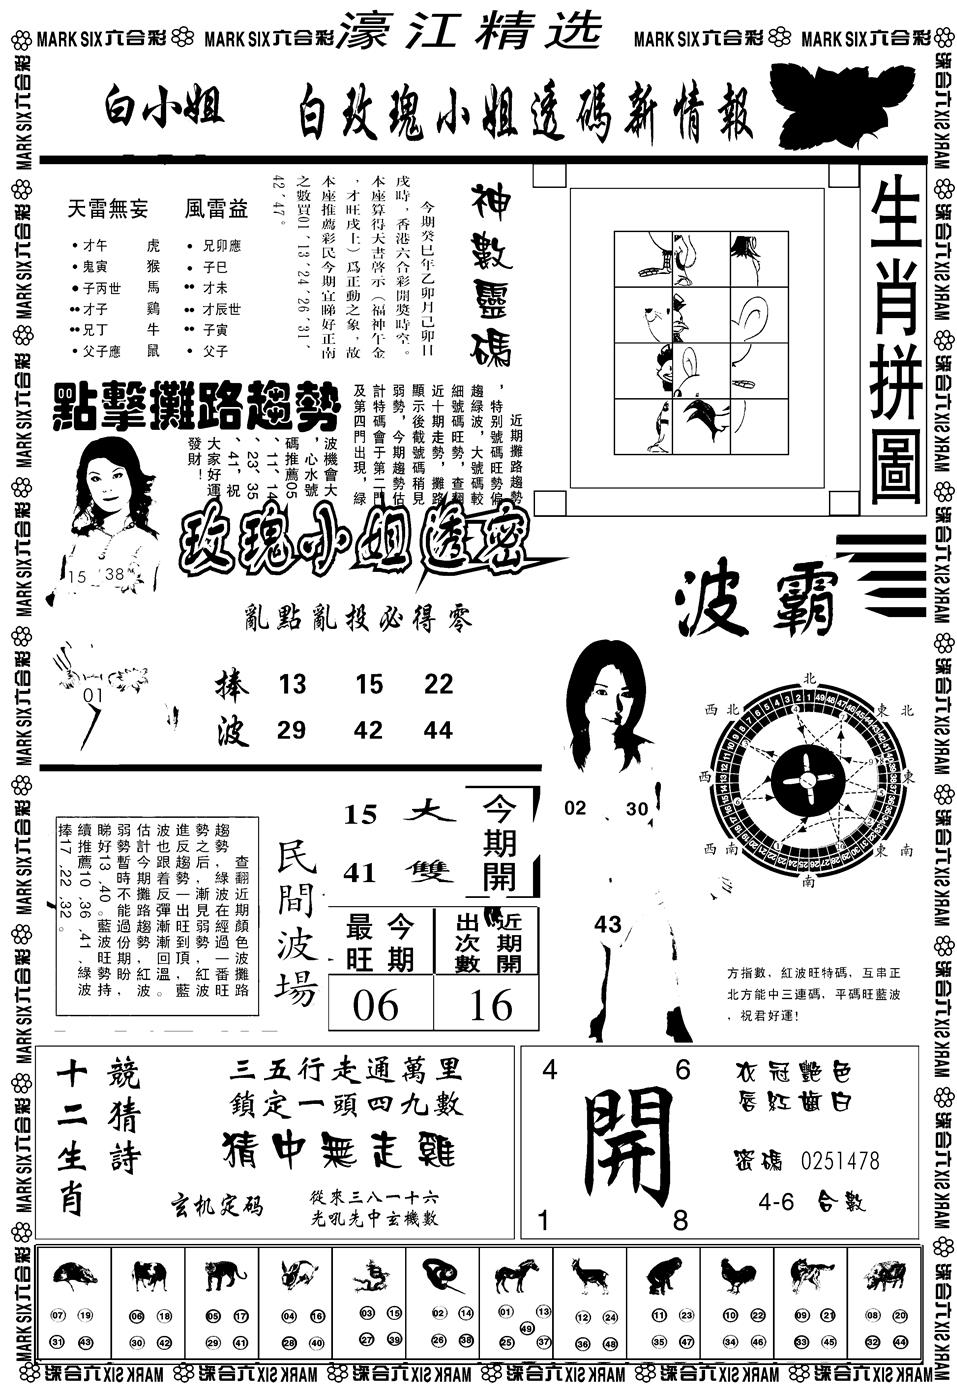 MARK SIX六合彩 MARK SIX六合彩 濠江精选 MARK SIX六合彩 MARK SIX六合彩
白小姐 白玫瑰小姐透碼新情報
天雷無妄 風雷益
才午 虎 兄卯應
鬼寅 猴 子巳
子丙世 馬 才未
才子 鷄 才辰世
兄丁 牛 子寅
父子應 鼠 父子
神數靈碼
今期癸巳年乙卯月己卯日
戌時，香港六合彩開獎時空。
本座算得天書啓示（福神午金
，才旺戌上）爲正動之象，故
本座推薦彩民今期宜睇好正南
之數買01、13、24、26、31、
42、47。
生肖拼圖
點擊攤路趨勢
近期攤路趨勢
，特别號碼旺勢偏
趨綠波，大號碼較
細號碼旺勢，查翻
近十期走勢，攤路
顯示後截號碼稍見
弱勢，今期趨勢估
計特碼會于第二門
及第四門出現，綠
波機會大
，心水號
碼推薦05
、11、14
、23、35
、41，祝
大家好運
發財！
15 38
01
玫瑰小姐透密
亂點亂投必得零
捧 13 15 22
波 29 42 44
波霸
北
西北 東北
西 東
西南 東南
南
02 30
43
方指數，紅波旺特碼，互串正
北方能中三連碼，平碼旺藍波
，祝君好運！
查翻近期顏色波攤路
趨勢，綠波在經過一番旺
勢之后，漸見弱勢，紅波
進反趨勢一出旺到頂，藍
波也跟着反彈漸漸回溫。
估計今期攤路趨勢，紅波
弱勢暫時不能過份期盼，
睇好13、40。藍波旺勢持
續推薦10、36、41，綠波
捧17、22、32。
民間波場
15 大 今期開
41 雙
今期最旺 近期開出次數
06 16
十二生肖
競猜詩
三五行走通萬里
鎖定一頭四九數
猜中無走雞
玄机定码
從來三八一十六
光吼先中玄機數
4 6
開
1 8
衣冠艷色
唇紅齒白
密碼 0251478
4-6 合數
07 19 06 18 05 17 04 16 03 15 02 14 01 13 12 24 11 23 10 22 09 21 08 20
49
31 43 30 42 29 41 28 40 27 39 26 38 25 37 36 48 35 47 34 46 33 45 32 44
MARK SIX六合彩 MARK SIX六合彩 MARK SIX六合彩 MARK SIX六合彩